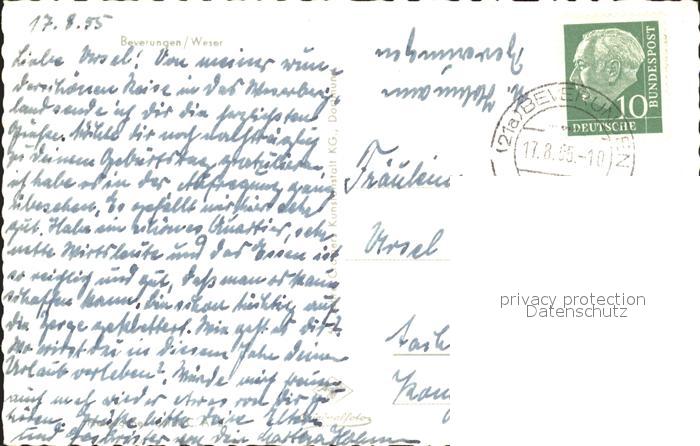 17.8.55
Beverungen/Weser
Liebe Ursel! Von meiner wun-
derschönen Reise in das Weserberg-
land sende ich dir die herzlichsten
Grüße. Möchte dir noch nachträglich
zu deinem Geburtstag gratulieren,
ich habe es in der Aufregung ganz
übersehen. Es gefällt mir hier sehr
gut. Habe ein schönes Quartier, sehr
nette Wirtsleute und das Essen ist
so reichlich und gut, daß man es kaum
schaffen kann. Bin schon tüchtig auf
die Berge geklettert. Wie geht es dir?
Wo wirst du in diesem Jahr deinen
Urlaub verleben? Würde mich freuen
auch mal wieder etwas von dir zu
hören. Grüße bitte deine Eltern
und Geschwister von den
Kunstanstalt KG., Dortmund
Beverungen
(21a) BEVERUNGEN
17.8.55.-10
10
DEUTSCHE
BUNDESPOST
Fräulein
Ursel
Aach
privacy protection
Datenschutz